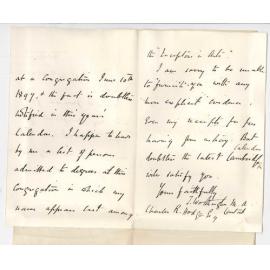 at a Congregation June 10th
1897, & the fact is doubtless
notified in this year's
Calendar. I happen to have
by me a list of persons
admitted to degrees at this
Congregation in which my
name appears last among
the "Inceptors in Arts"
I am sorry to be unable
to furnish you with any
more explicit evidence.
Even my receipt for fees
having gone astray. But
doubtless the latest Cambridge Calendar
will satisfy you.
Yours faithfully
J. Worthington M.A.
Charles R. Hodge Esq